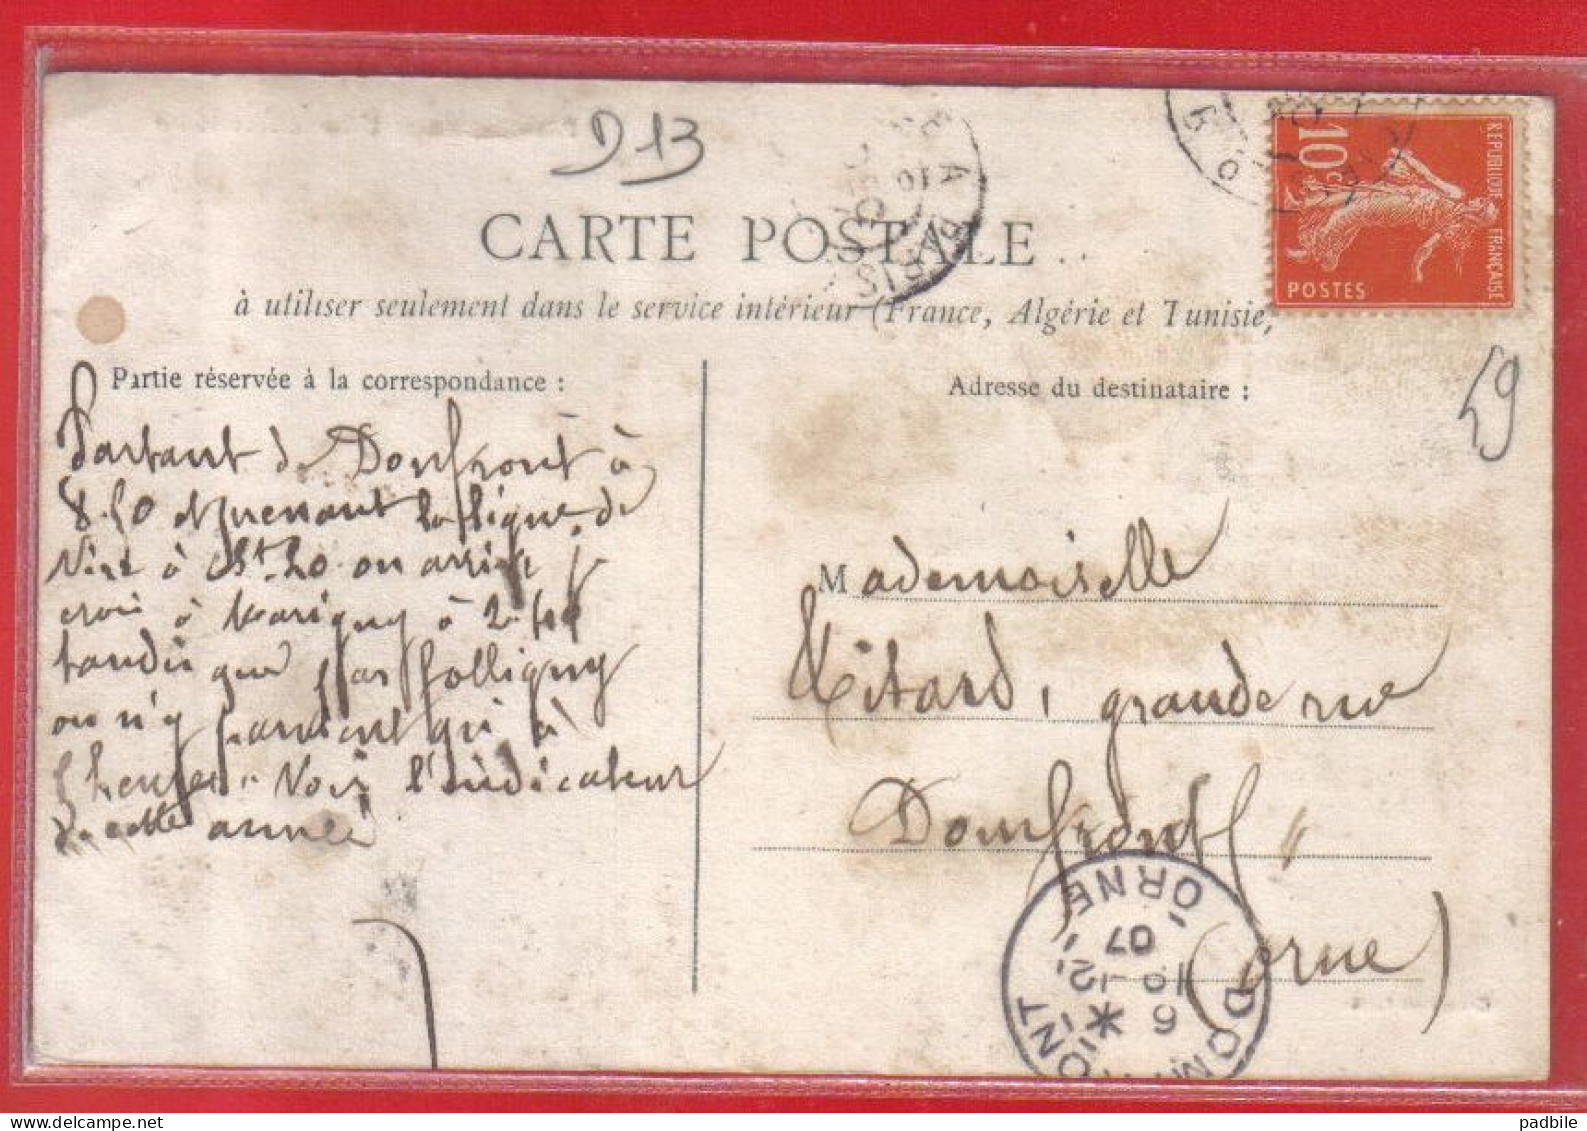 D13
CARTE POSTALE
à utiliser seulement dans le service intérieur (France, Algérie et Tunisie,
RÉPUBLIQUE FRANÇAISE
10c
POSTES
A PARIS
59
Partie réservée à la correspondance :
Partant de Domfront à
8.50 et prenant la ligne de
Vire à St-Lo on arrive
à Marigny à 2.
tandis que par Folligny
on n'y parvient qu'à
5 heures. Voir l'indicateur
de cette année
Adresse du destinataire :
Mademoiselle
Mitard, grande rue
Domfront
(Orne)
DOMFRONT
ORNE
6
10
07
padbile